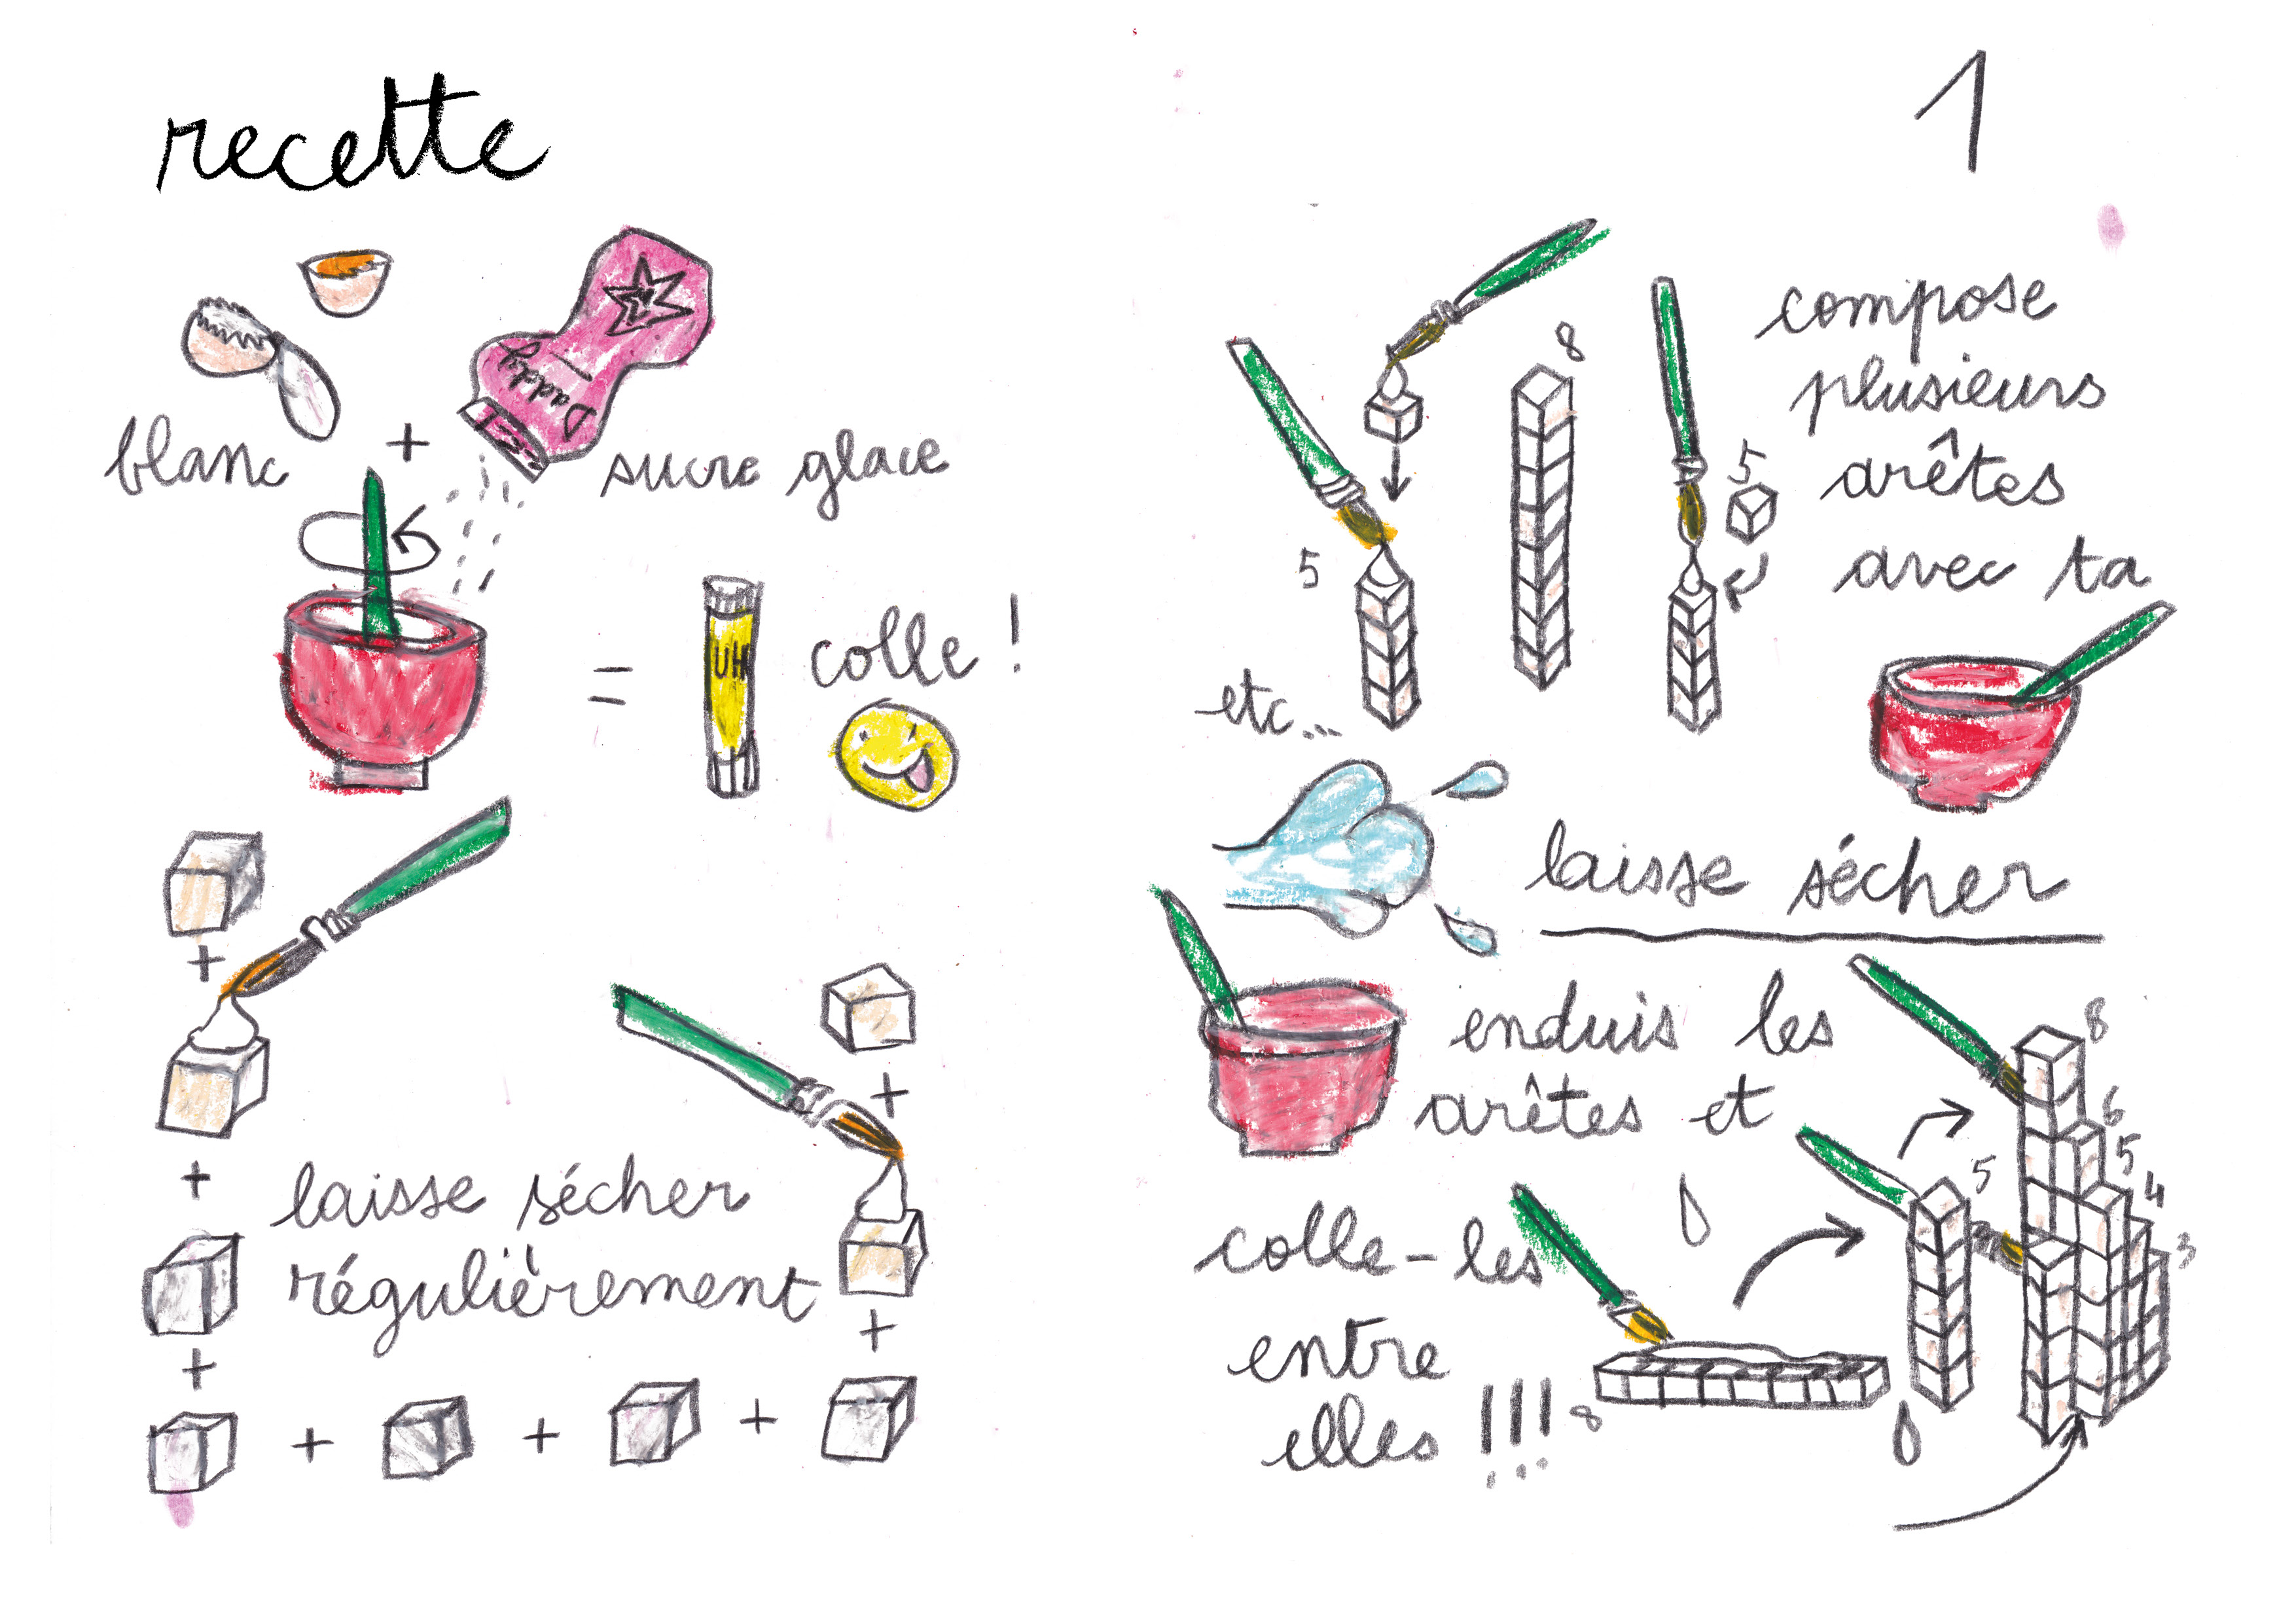 recette
Daddy
blanc + sucre glace
= UH colle !
+
+
laisse sécher
régulièrement
+
+
+
+ + +
1
8
compose
plusieurs
5
arêtes
5
avec ta
etc...
laisse sécher
enduis les
8
arêtes et
6
5
5
4
colle-les
3
entre
elles !!!
8